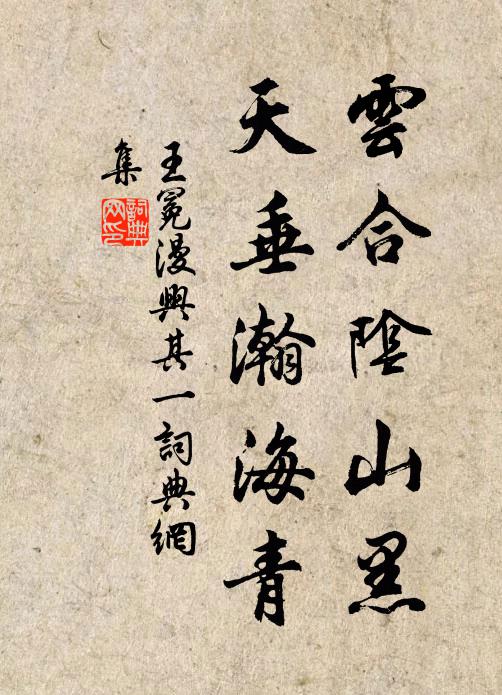 雲合陰山黑
天垂瀚海青
王冕漫興其一詞典網
集
詞典網印